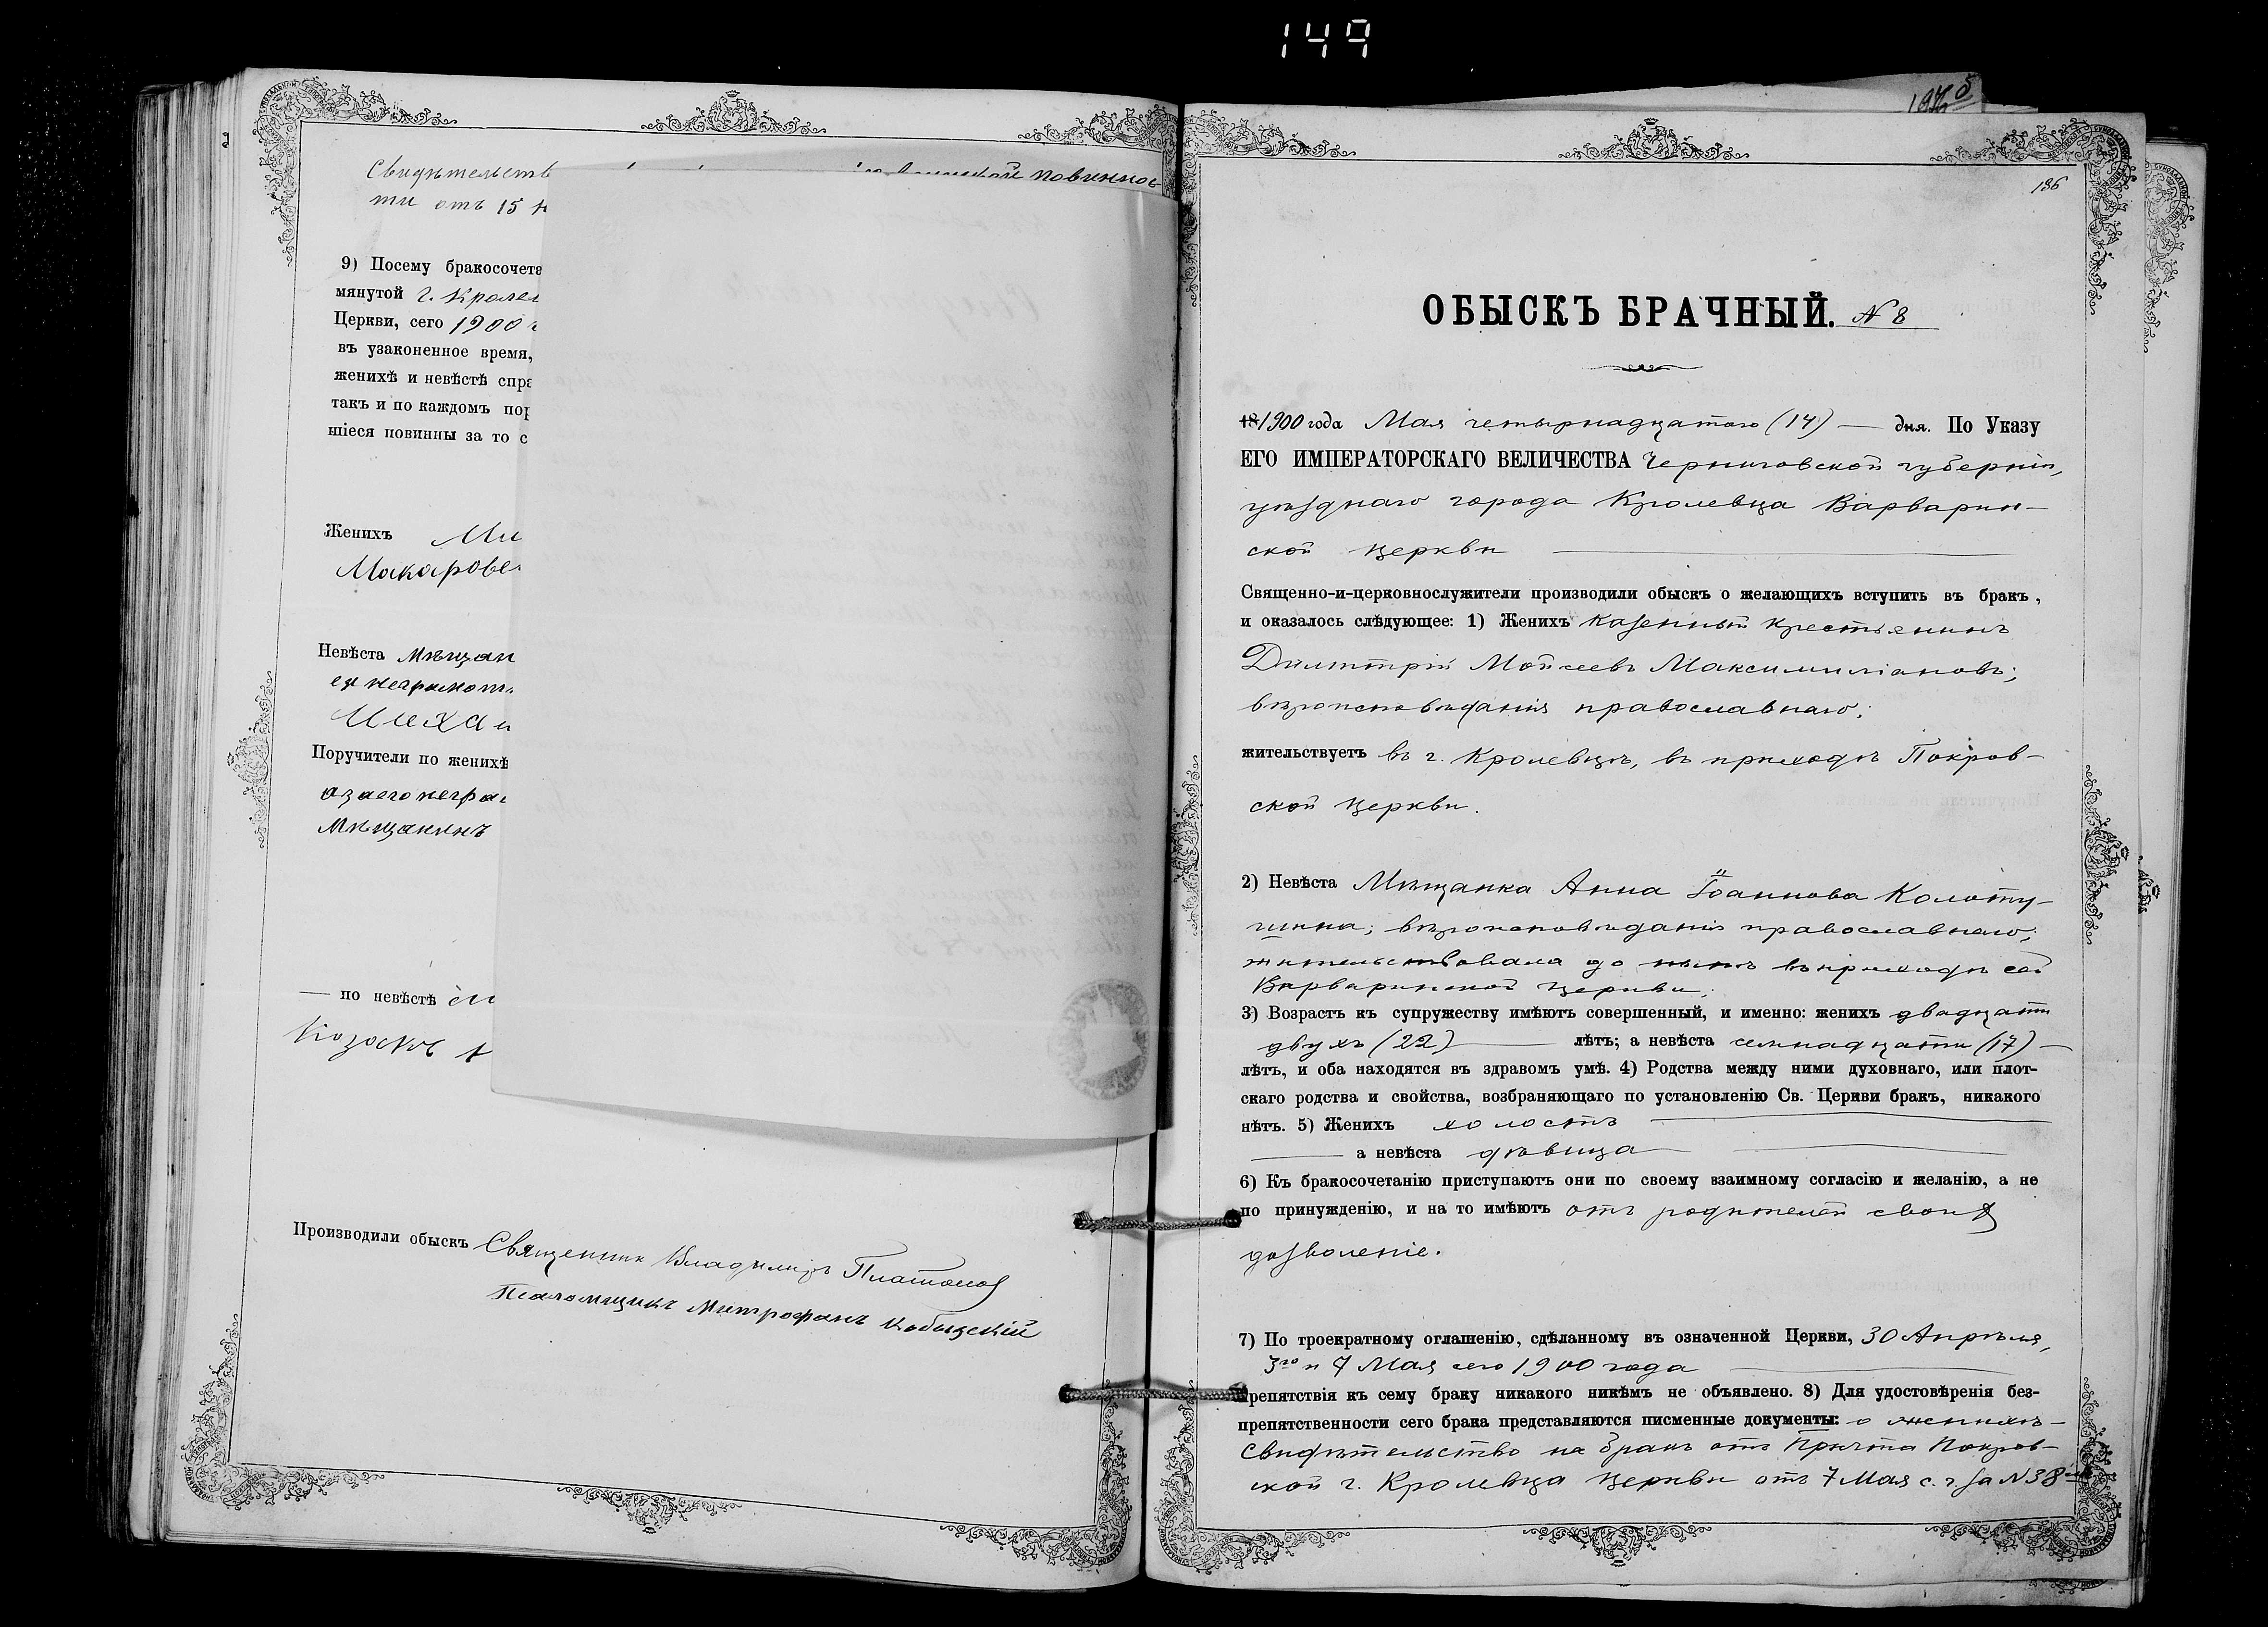 149
Свидѣтельств
воинской повиннос-
ти отъ 15
9) Посему бракосочета
мянутой г. Кролев
Церкви, сего 1900 г
въ узаконенное время,
женихѣ и невѣстѣ спра
такъ и по каждомъ пор
шіеся повинны за то с
Женихъ Ми
Макарове
Невѣста Мѣщан
ея неграмотн
Миха
Поручители по женихѣ
а за его негра
Мѣщанинъ
— по невѣстѣ
Козакъ
Производили обыскъ Священник Владимиръ Платонов
Псаломщикъ Митрофанъ Кобызскій
186
ОБЫСКЪ БРАЧНЫЙ. N 8
18 1900 года Мая четырнадцатаго (14) — дня. По Указу
ЕГО ИМПЕРАТОРСКАГО ВЕЛИЧЕСТВА Черниговской губерніи,
уѣзднаго города Кролевца Варварин-
ской церкви
Священно-и-церковнослужители производили обыскъ о желающихъ вступить въ бракъ,
и оказалось слѣдующее: 1) Женихъ казенный крестьянинъ
Димитрій Мойсеевъ Максимиліановъ;
вѣроисповѣданія православнаго;
жительствуетъ въ г. Кролевцѣ, въ приходѣ Покров-
ской церкви.
2) Невѣста Мѣщанка Анна Іоаннова Колоту-
шина; вѣроисповѣданія православнаго;
жительствовала до нынѣ въ приходѣ сей
Варваринской церкви;
3) Возрастъ къ супружеству имѣютъ совершенный, и именно: женихъ двадцати
двухъ (22) — лѣтъ; а невѣста семнадцати (17) —
лѣтъ, и оба находятся въ здравомъ умѣ. 4) Родства между ними духовнаго, или плот-
скаго родства и свойства, возбраняющаго по установленію Св. Церкви бракъ, никакого
нѣтъ. 5) Женихъ холостъ
— а невѣста дѣвица
6) Къ бракосочетанію приступаютъ они по своему взаимному согласію и желанію, а не
по принужденію, и на то имѣютъ отъ родителей своихъ
дозволеніе.
7) По троекратному оглашенію, сдѣланному въ означенной Церкви, 30 Апрѣля,
3го и 7 Мая сего 1900 года
препятствія къ сему браку никакого никѣмъ не объявлено. 8) Для удостовѣренія без-
препятственности сего брака представляются писменные документы: о женихѣ —
Свидѣтельство на бракъ отъ Причта Покров-
ской г. Кролевца церкви отъ 7 Мая с. г. за N 38